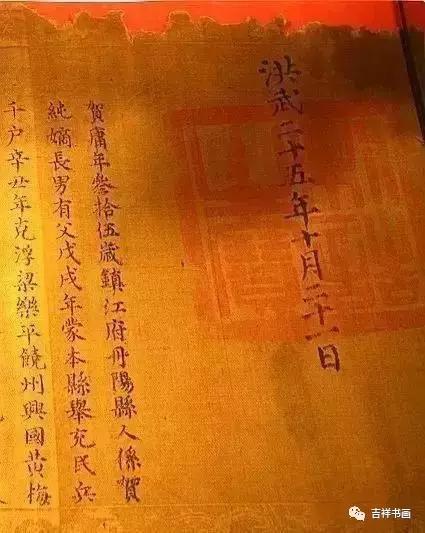 洪武二十五年十月二十一日
賀庸年叁拾伍歲鎮江府丹陽縣人係賀
純嫡長男有父戊戌年蒙本縣舉充民兵
千戶辛丑年克浮梁樂平饒州興國黃梅
吉祥书画